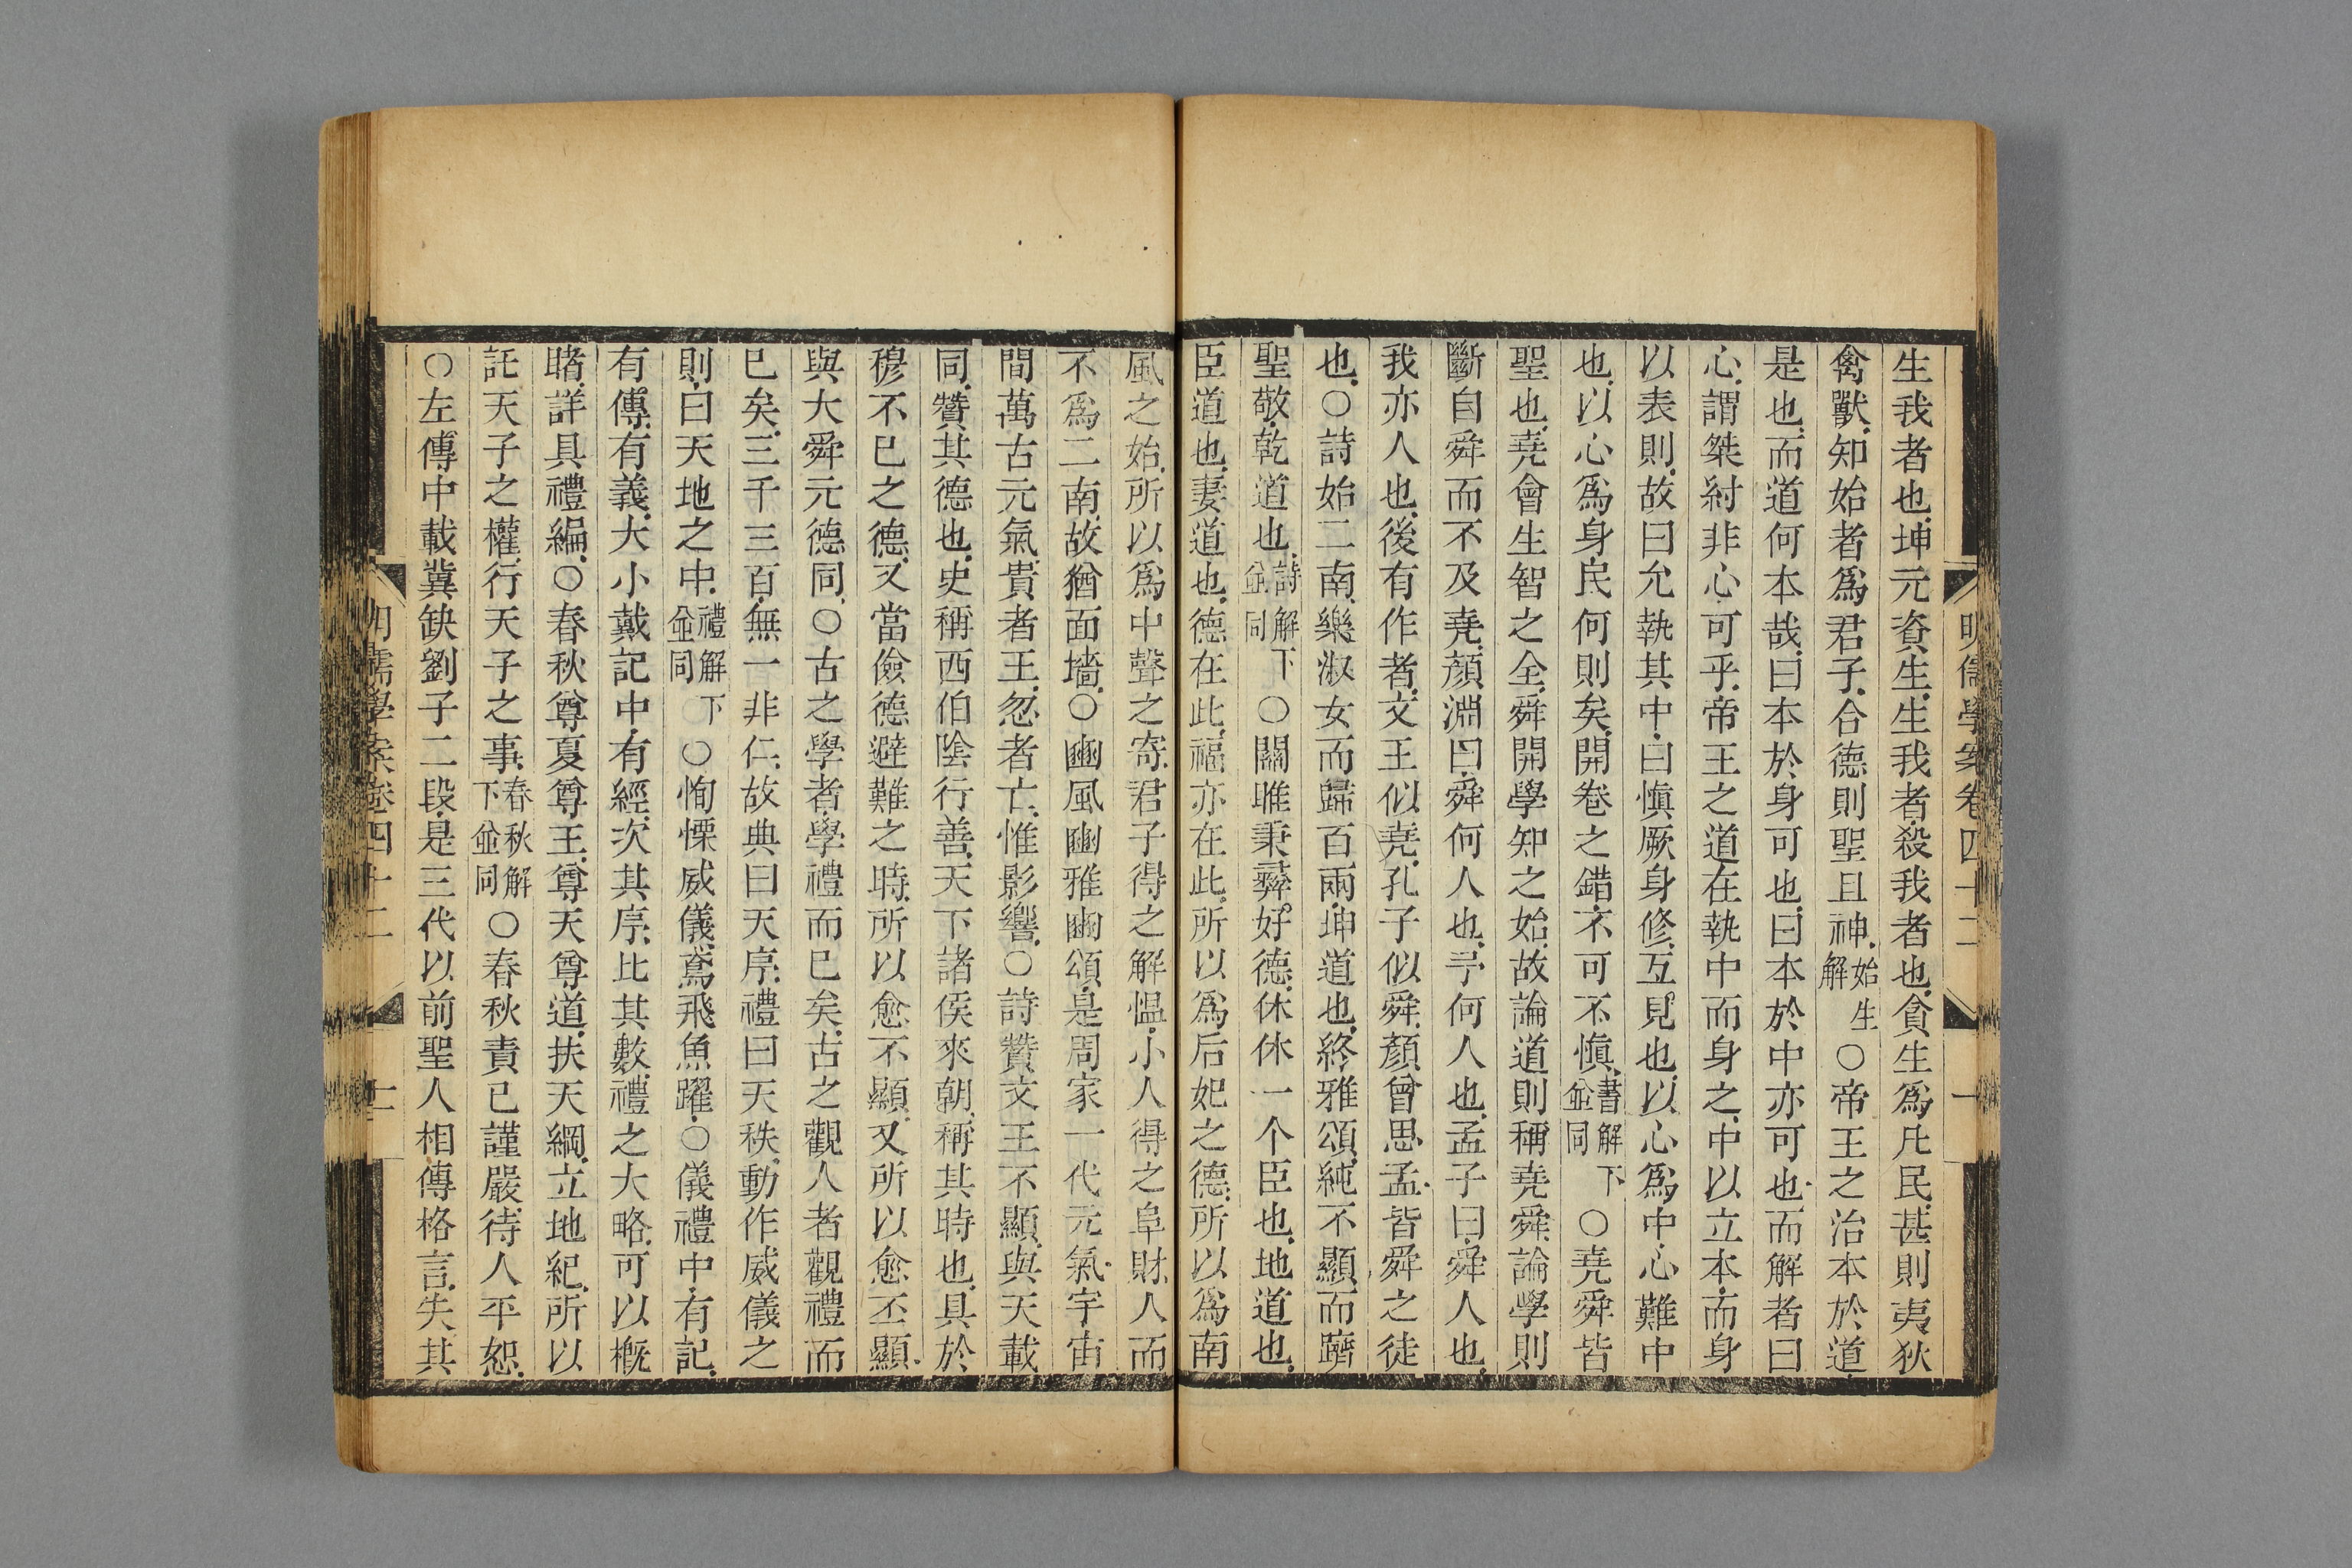 明儒學案卷四十二
一
生我者也坤元資生生我者殺我者也貪生爲凡民甚則夷狄
禽獸知始者爲君子合德則聖且神始生解○帝王之治本於道
是也而道何本哉曰本於身可也曰本於中亦可也而解者曰
心謂桀紂非心可乎帝王之道在執中而身之中以立本而身
以表則故曰允執其中曰愼厥身修互見也以心爲中心難中
也以心爲身民何則矣開卷之錯不可不愼書解下並同○堯舜皆
聖也堯會生智之全舜開學知之始故論道則稱堯舜論學則
斷自舜而不及堯顏淵曰舜何人也予何人也孟子曰舜人也
我亦人也後有作者文王似堯孔子似舜顏曾思孟皆舜之徒
也○詩始二南樂淑女而歸百兩坤道也終雅頌純不顯而躋
聖敬乾道也詩解下並同○關雎秉彝好德休休一个臣也地道也
臣道也妻道也德在此福亦在此所以爲后妃之德所以爲南
風之始所以爲中聲之寄君子得之解慍小人得之阜財人而
不爲二南故猶面墻○豳風豳雅豳頌是周家一代元氣宇宙
間萬古元氣貴者王忽者亡惟影響○詩贊文王不顯與天載
同贊其德也史稱西伯陰行善天下諸侯來朝稱其時也具於
穆不已之德又當儉德避難之時所以愈不顯又所以愈丕顯
與大舜元德同○古之學者學禮而已矣古之觀人者觀禮而
已矣三千三百無一非仁故典曰天序禮曰天秩動作威儀之
則曰天地之中禮解下並同○恂慄威儀鳶飛魚躍○儀禮中有記
有傳有義大小戴記中有經次其序比其數禮之大略可以槪
睹詳具禮編○春秋尊夏尊王尊天尊道扶天綱立地紀所以
託天子之權行天子之事春秋解下並同○春秋責已謹嚴待人平恕
○左傳中載冀缺劉子二段是三代以前聖人相傳格言失其
明儒學案卷四十二